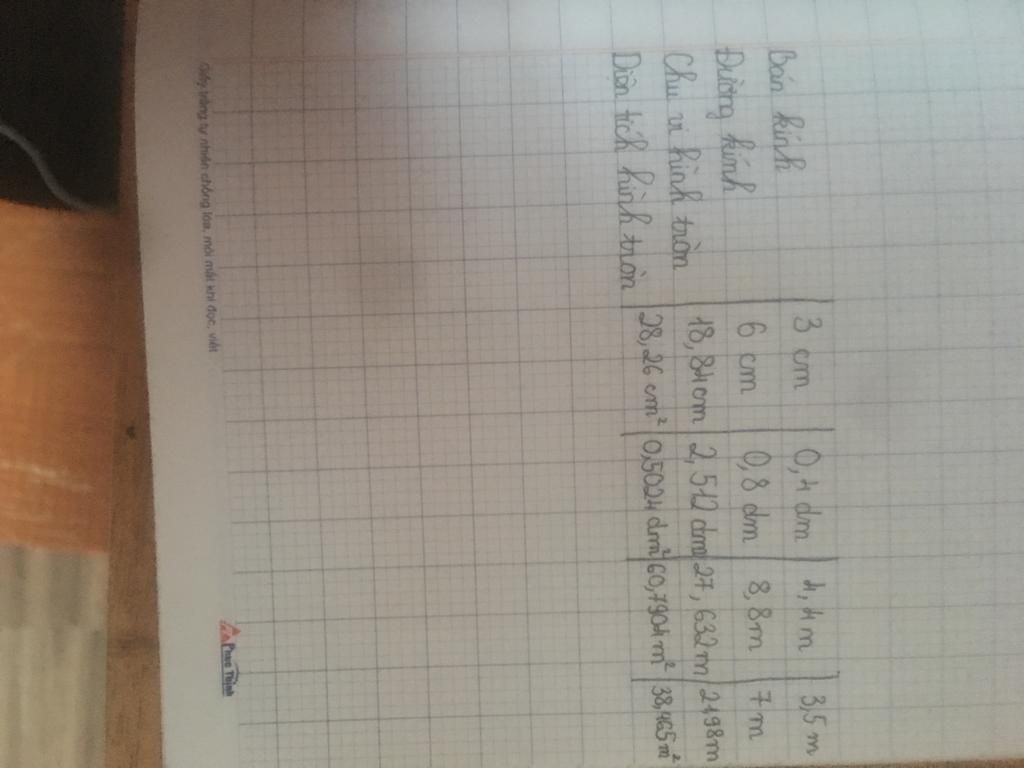 Bán kính | 3 cm | 0,4 dm | 4,4 m | 3,5 m
Đường kính | 6 cm | 0,8 dm | 8,8 m | 7 m
Chu vi hình tròn | 18,84 cm | 2,512 dm | 27,632 m | 2198 m
Diện tích hình tròn | 28,26 cm² | 0,5024 dm² | 60,7904 m² | 38,465 m²
Giấy trắng tự nhiên chống lóa, mỏi mắt khi đọc, viết